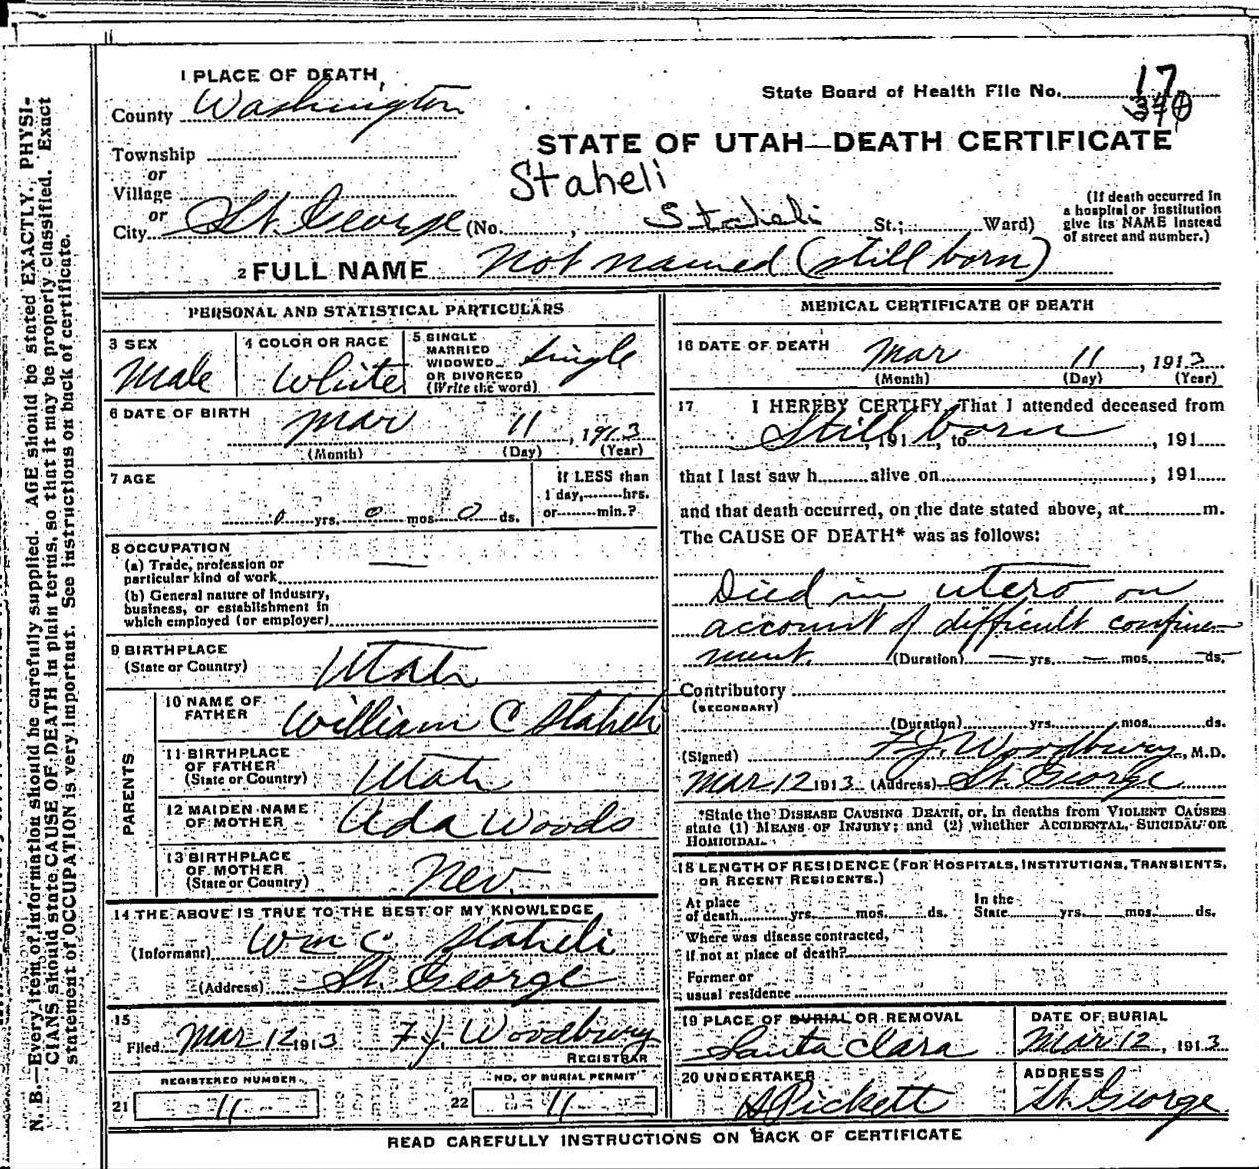 1 PLACE OF DEATH
County Washington
State Board of Health File No. 17
370
Township
or
Village
or
City St. George (No. , Staheli St.; Ward)
STATE OF UTAH—DEATH CERTIFICATE
Staheli
(If death occurred in
a hospital or institution
give its NAME instead
of street and number.)
2 FULL NAME Not named (still born)
PERSONAL AND STATISTICAL PARTICULARS
3 SEX
Male
4 COLOR OR RACE
White
5 SINGLE
MARRIED
WIDOWED
OR DIVORCED
(Write the word)
Single
6 DATE OF BIRTH
Mar 11, 1913
(Month) (Day) (Year)
7 AGE
0 yrs. 0 mos. 0 ds.
If LESS than
1 day, hrs.
or min.?
8 OCCUPATION
(a) Trade, profession or
particular kind of work
(b) General nature of Industry,
business, or establishment in
which employed (or employer)
9 BIRTHPLACE
(State or Country)
Utah
PARENTS
10 NAME OF
FATHER
William C Staheli
11 BIRTHPLACE
OF FATHER
(State or Country)
Utah
12 MAIDEN NAME
OF MOTHER
Ada Woods
13 BIRTHPLACE
OF MOTHER
(State or Country)
Nev.
14 THE ABOVE IS TRUE TO THE BEST OF MY KNOWLEDGE
(Informant) Wm C Staheli
(Address) St. George
15
Filed Mar 12 1913 F. J. Woodbury
REGISTRAR
REGISTERED NUMBER
21 11
NO. OF BURIAL PERMIT
22 11
MEDICAL CERTIFICATE OF DEATH
16 DATE OF DEATH
Mar 11, 1913
(Month) (Day) (Year)
17 I HEREBY CERTIFY, That I attended deceased from
Still, 191, to born, 191
that I last saw h alive on , 191
and that death occurred, on the date stated above, at m.
The CAUSE OF DEATH* was as follows:
Died in utero on
account of difficult confine-
ment. (Duration) — yrs. — mos. ds.
Contributory
(SECONDARY)
(Duration) yrs. mos. ds.
(Signed) F. J. Woodbury, M.D.
Mar 12 1913 (Address) St. George
*State the DISEASE CAUSING DEATH, or, in deaths from VIOLENT CAUSES
state (1) MEANS OF INJURY; and (2) whether ACCIDENTAL, SUICIDAL OR
HOMICIDAL.
18 LENGTH OF RESIDENCE (FOR HOSPITALS, INSTITUTIONS, TRANSIENTS,
OR RECENT RESIDENTS.)
At place
of death yrs. mos. ds.
In the
State yrs. mos. ds.
Where was disease contracted,
if not at place of death?
Former or
usual residence
19 PLACE OF BURIAL OR REMOVAL
Santa Clara
DATE OF BURIAL
Mar 12, 1913
20 UNDERTAKER
Pickett
ADDRESS
St. George
READ CAREFULLY INSTRUCTIONS ON BACK OF CERTIFICATE
N. B.—Every item of information should be carefully supplied. AGE should be stated EXACTLY. PHYSI-
CIANS should state CAUSE OF DEATH in plain terms, so that it may be properly classified. Exact
statement of OCCUPATION is very important. See instructions on back of certificate.